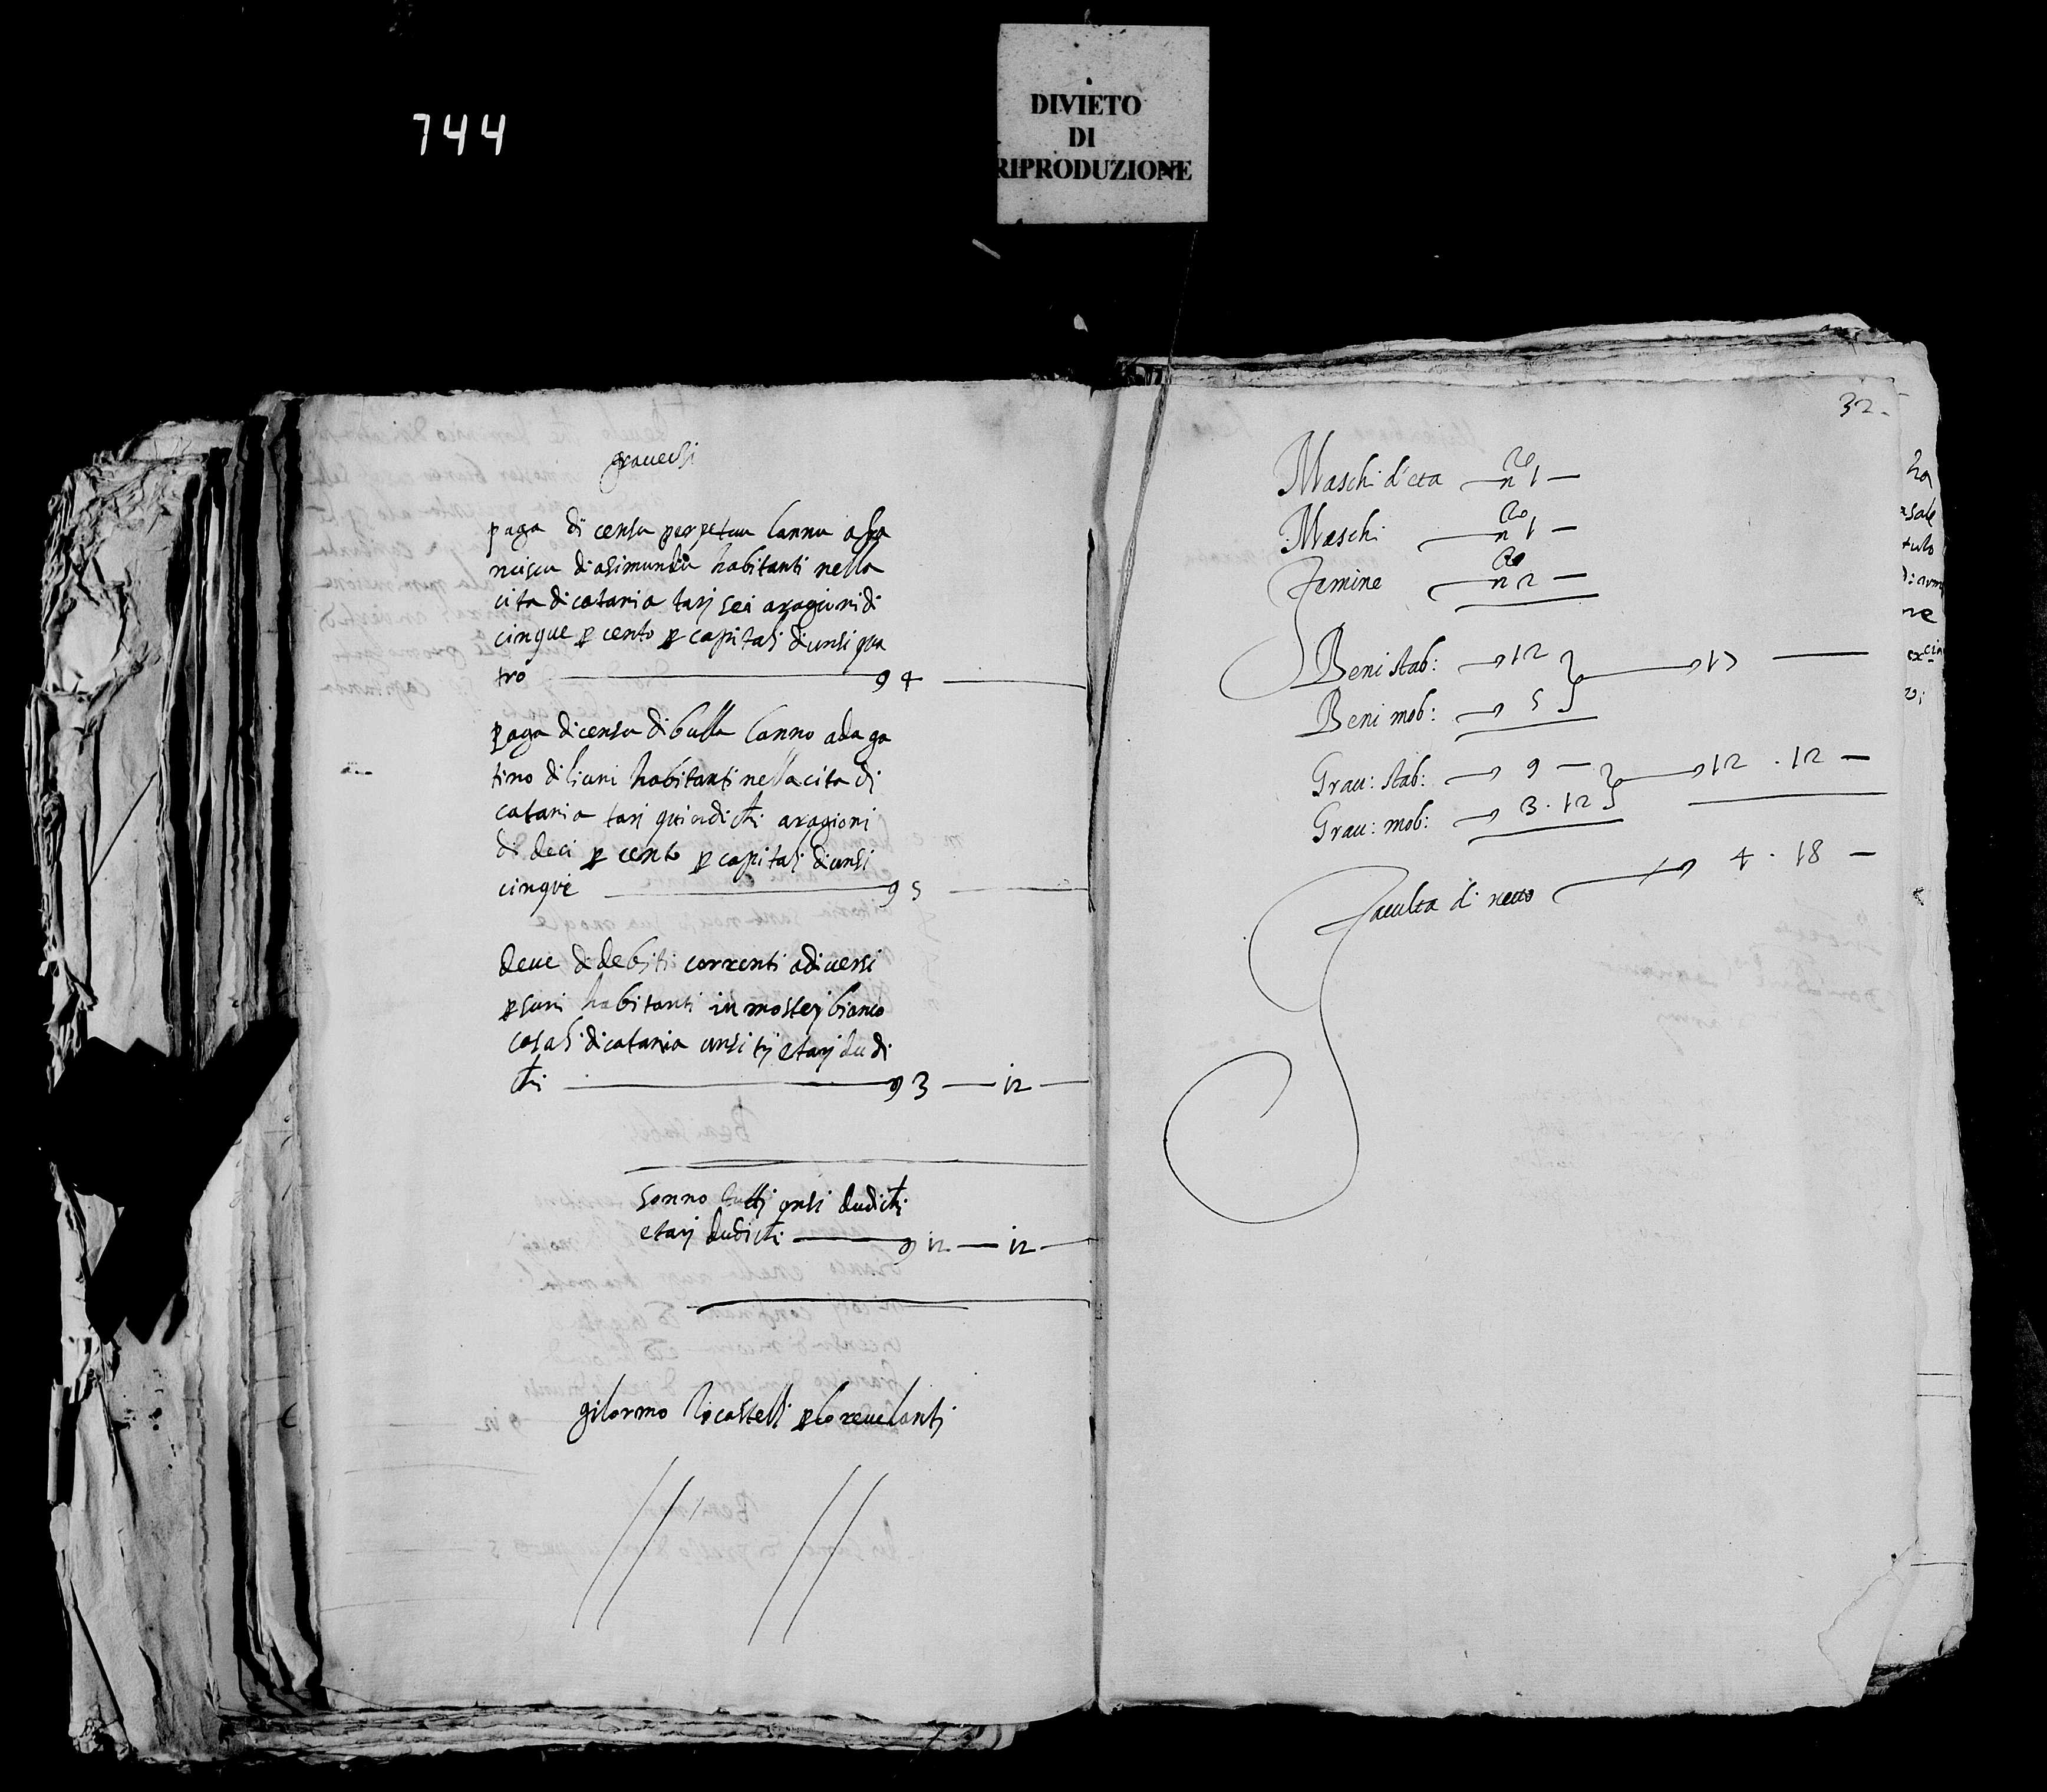 744
DIVIETO
DI
RIPRODUZIONE
gravezi
paga di censu perpetuu lannu a fra
nciscu di asimundu habitanti nella
cita di catania tarj sei aragiuni di
cinque p cento p capitali di unsi qua
tro 9 4
paga di censu di bulla lanno ad aga
tino di liuni habitanti nella cita di
catania tarj quindichi aragioni
di deci p cento p capitali di unsi
cinque 9 5
deve di debiti correnti a diversi
psuni habitanti in mosterj bianco
casali di catania unsi trj e tarj dudi
chi 9 3 — 12 —
sonno tutti onsi dudichi
e tarj dudichi 9 12 — 12 —
gilormo locastelli p lo revelanti
32.
Maschi d'eta — n 1 —
Maschi — n 1 —
Femine — n 2 —
Beni stab: 12 17 —
Beni mob: 5
Grau: stab: 9 — 12 . 12 —
Grau: mob: 3 . 12
Faculta di netto 4 . 18 —